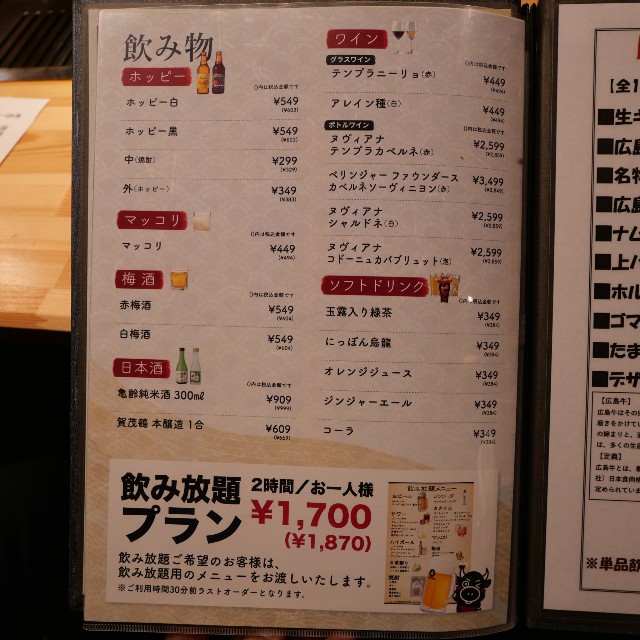 飲み物
ホッピー
()内は税込金額です
ホッピー白 ¥549
(¥603)
ホッピー黒 ¥549
(¥603)
中(焼酎) ¥299
(¥329)
外(ホッピー) ¥349
(¥383)
マッコリ
()内は税込金額です
マッコリ ¥449
(¥494)
梅酒
()内は税込金額です
赤梅酒 ¥549
(¥604)
白梅酒 ¥549
(¥604)
日本酒
()内は税込金額です
亀齢純米酒 300㎖ ¥909
(¥999)
賀茂鶴 本醸造 1合 ¥609
(¥669)
ワイン
グラスワイン
()内は税込金額です
テンプラニーリョ(赤) ¥449
(¥494)
アレイン種(白) ¥449
(¥494)
ボトルワイン
ヌヴィアナ
テンプラカベルネ(赤) ¥2,599
(¥2,859)
ベリンジャー ファウンダース
カベルネソーヴィニヨン(赤) ¥3,499
(¥3,849)
ヌヴィアナ
シャルドネ(白) ¥2,599
(¥2,859)
ヌヴィアナ
コドーニュカバブリュット(泡) ¥2,599
(¥2,859)
ソフトドリンク
()内は税込金額です
玉露入り緑茶 ¥349
(¥384)
にっぽん烏龍 ¥349
(¥384)
オレンジジュース ¥349
(¥384)
ジンジャーエール ¥349
(¥384)
コーラ ¥349
(¥384)
飲み放題
プラン
2時間/お一人様
¥1,700
(¥1,870)
飲み放題ご希望のお客様は、
飲み放題用のメニューをお渡しいたします。
※ご利用時間30分前ラストオーダーとなります。
飲み放題メニュー
【全1
■生
■広島
■名物
■広島
■ナム
■上ハ
■ホル
■ゴマ
■たま
■デザ
【広島牛】
広島牛はその
磨きをかけてい
の締まりと、
は、多くの生産
【定義】
広島牛とは、
社)日本食肉格
定められていま
※単品飲